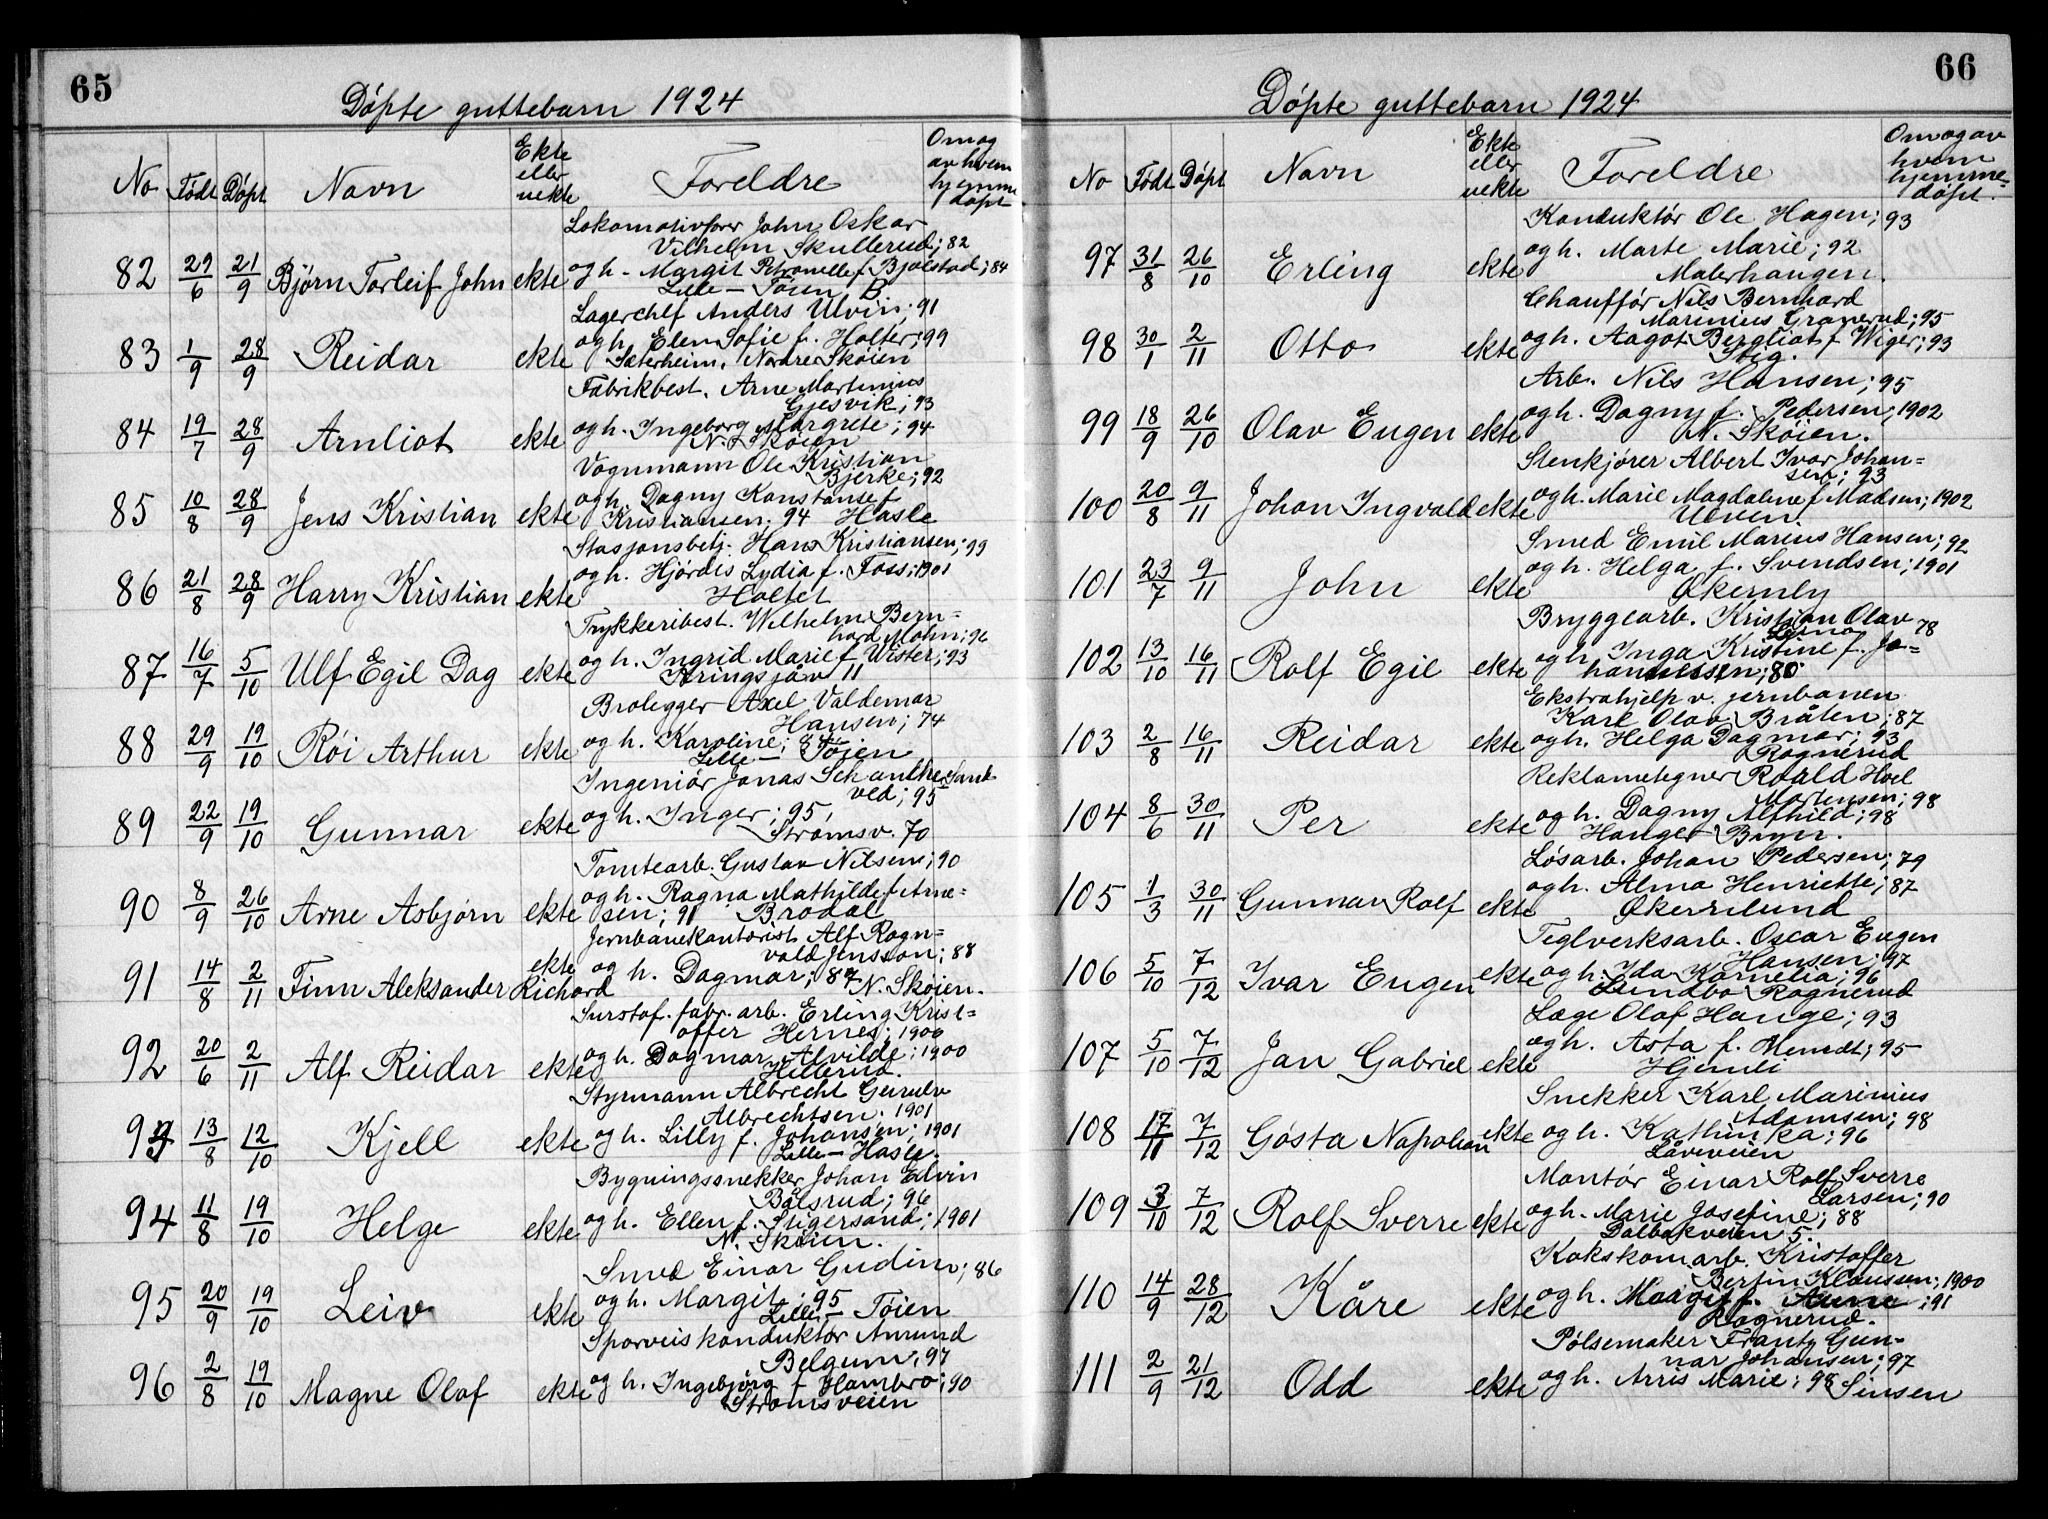 65
Døpte guttebarn 1924
No Født Døpt Navn Ekte eller uekte Foreldre Om og av hvem hjemmedøpt
Lokomotivfører John Oskar
Vilhelm Skullerud; 82
82 29/6 21/9 Bjørn Torleif John ekte og h. Margit Petronelle f. Bjølstad; 84
Lille-Tøien B
Lagerchef Anders Ulvin; 91
83 1/9 28/9 Reidar ekte og h. Elen Sofie f. Holter; 99
Sæterheim, Nordre Skøien
Fabrikbest. Arne Martinius
Gjesvik; 93
84 19/7 28/9 Arnliot ekte og h. Ingeborg Margrete; 94
N. Skøien
Vognmann Ole Kristian
Bjerke; 92
85 10/8 28/9 Jens Kristian ekte og h. Dagny Konstanse f.
Kristiansen; 94 Hasle
Stasjonsbetj. Hans Kristiansen; 99
86 21/8 28/9 Harry Kristian ekte og h. Hjørdis Lydia f. Foss; 1901
Holtet
Trykkeribest. Wilhelm Bern-
hard Mohn; 96
87 16/7 5/10 Ulf Egil Dag ekte og h. Ingrid Marie f. Wister; 93
Kringsjåv 11
Brolegger Axel Valdemar
Hansen; 74
88 29/9 19/10 Rói Arthur ekte og h. Karoline; 84
Lille-Tøien
Ingeniør Jonas Schanthe Sand-
ved; 95
89 22/9 19/10 Gunnar ekte og h. Inger; 95,
Strømsv. 70
Tomtearb. Gustav Nilsen; 90
90 8/9 26/10 Arne Asbjørn ekte og h. Ragna Mathilde f. Arne-
sen; 91 Brodal
Jernbanekontorist Alf Rogn-
vald Jensson; 88
91 14/8 2/11 Finn Aleksander Richard ekte og h. Dagmar; 87 N. Skøien.
Surstof. fabr. arb. Erling Krist-
offer Hernes; 1900
92 20/6 2/11 Alf Reidar ekte og h. Dagmar Alvilde; 1900
Hillerud.
Styrmann Albrecht Gerulv
Albrechtsen. 1901
93 13/8 12/10 Kjell ekte og h. Lilly f. Johansen; 1901
Lille-Hasle.
Bygningssnekker Johan Edvin
Bålsrud; 96
94 11/8 19/10 Helge ekte og h. Ellen f. Stigersand; 1901
N. Skøien.
Smed Einar Gudim; 86
95 20/9 19/10 Leiv ekte og h. Margit; 95
Lille-Tøien
Sporveiskonduktør Amund
Belgum; 97
96 2/8 19/10 Magne Olaf ekte og h. Ingebjørg f. Hambro; 90
Strømsveien
66
Døpte guttebarn 1924
No Født Døpt Navn Ekte eller uekte Foreldre Om og av hvem hjemme-døpt.
Konduktør Ole Hagen; 93
97 31/8 26/10 Erling ekte og h. Marte Marie; 92
Malerhaugen.
Chauffør Nils Bernhard
Marinius Granerud; 95
98 30/1 2/11 Otto ekte og h. Aagot Bergliot f. Wiger; 93
Stig.
Arb. Nils Hansen; 95
99 18/9 26/10 Olav Eugen ekte og h. Dagny f. Pedersen; 1902
N. Skøien.
Stenkjører Albert Ivar Johan-
sen; 93
100 20/8 9/11 Johan Ingvald ekte og h. Marie Magdalene f. Madsen; 1902
Ulven
Smed Emil Marius Hansen; 92
101 23/7 9/11 John ekte og h. Helga f. Svendsen; 1901
Økernby
Bryggearb. Kristian Olav
78
102 13/10 16/11 Rolf Egil ekte og h. Inga Kristine f. Jo-
hannessen; 80
Ekstrahjelp v. jernbanen
Karl Olav Bråten; 87
103 2/8 16/11 Reidar ekte og h. Helga Dagmar; 93
Rognerud
Reklametegner Roald Hoel
Mortensen; 98
104 8/6 30/11 Per ekte og h. Dagny Alfhild; 98
Hauger Bryn.
Løsarb. Johan Pedersen; 79
105 1/3 30/11 Gunnar Rolf ekte og h. Alma Henriette; 87
Økernlund
Teglverksarb. Oscar Eugen
Hansen; 97
106 5/10 7/12 Ivar Eugen ekte og h. Ida Kornelia; 96
Lundbo Rognerud
Læge Olaf Hauge; 93
107 5/10 7/12 Jan Gabriel ekte og h. Asta f. Mendt; 95
Hjemli
Snekker Karl Marinius
Adamsen; 98
108 17/11 7/12 Gösta Napoleon ekte og h. Kathinka; 96
Låveveien
Montør Einar Rolf Sverre
Larsen; 90
109 3/10 7/12 Rolf Sverre ekte og h. Marie Josefine; 88
Dalbakveien 5.
Kokskom. arb. Kristoffer
Bertin Klaussen; 1900
110 14/9 28/12 Kåre ekte og h. Margit f. Aune; 91
Rognerud.
Pølsemaker Frantz Gun-
nar Johansen; 97
111 2/9 21/12 Odd ekte og h. Arris Marie; 98 Sinsen